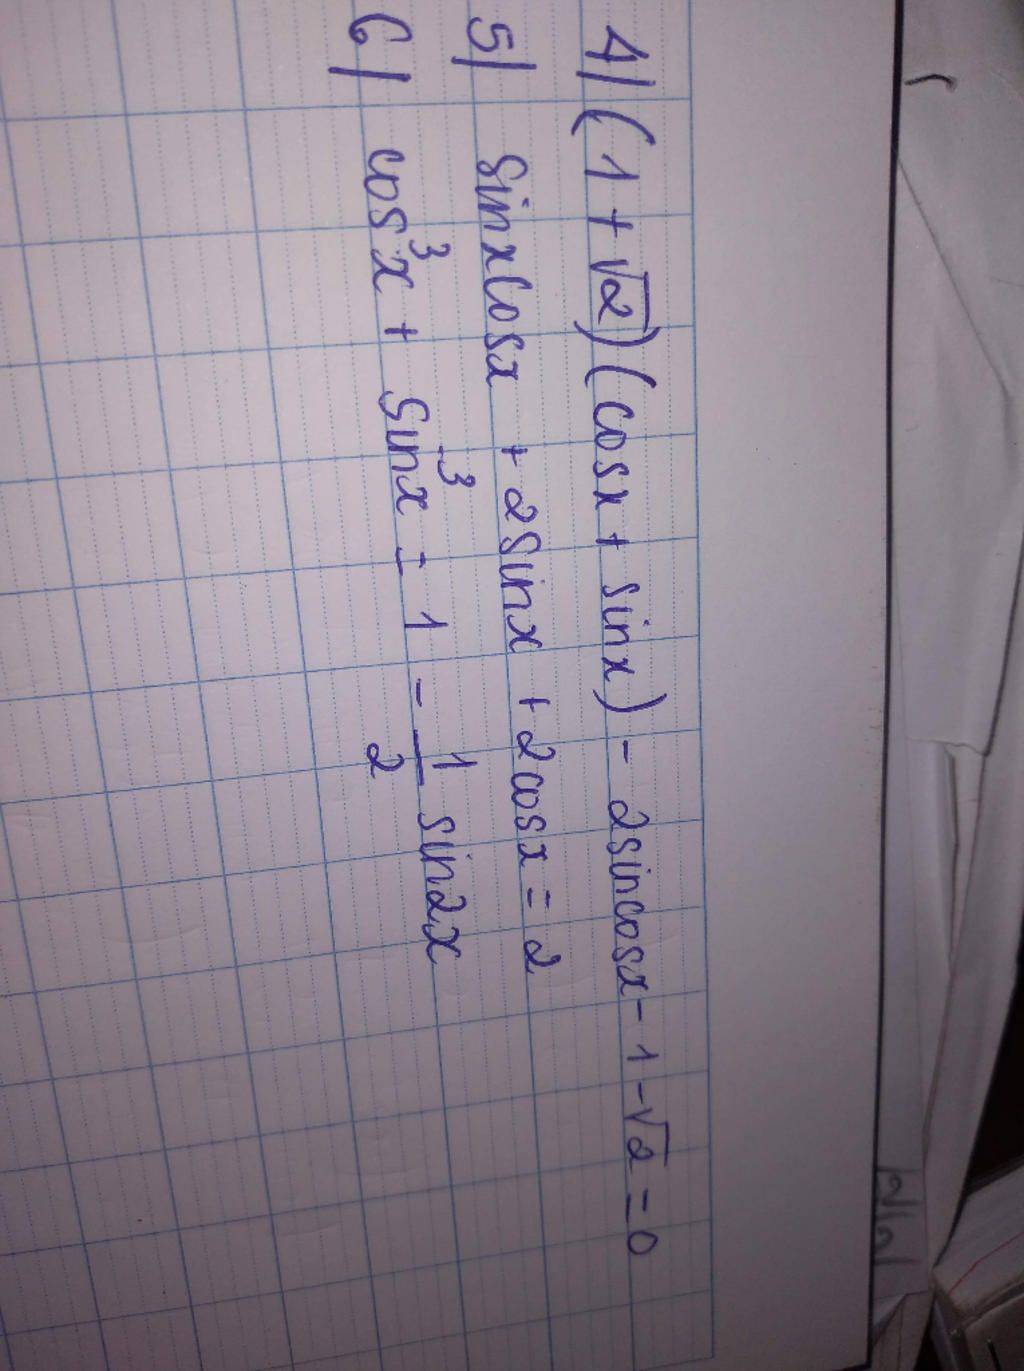 4) (1 + √2)(cosx + sinx) - 2sincosx - 1 - √2 = 0
5) sinxcosx + 2sinx + 2cosx = 2
6) cos³x + sin³x = 1 - 1/2 sin2x